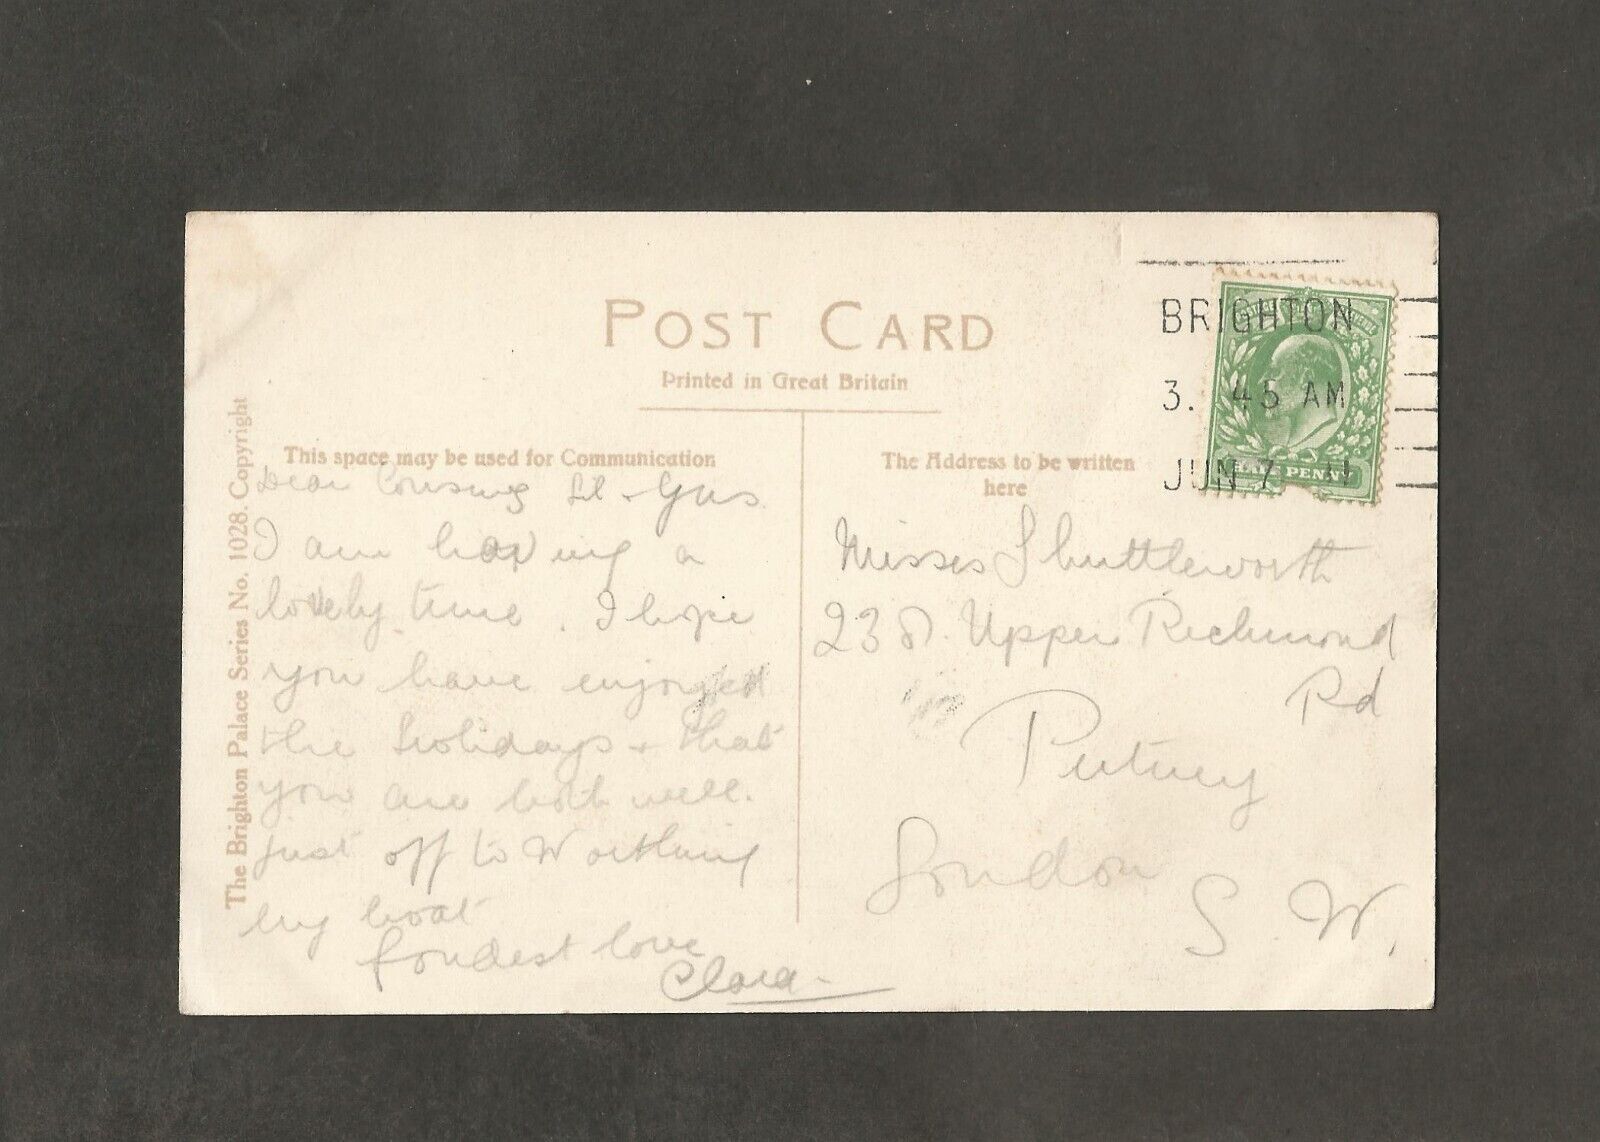 POST CARD
Printed in Great Britain
BRIGHTON
3. 45 AM
JUN 7 11
PENNY
The Brighton Palace Series No. 1028. Copyright
This space may be used for Communication
Dear Cousins Lil + Gus.
I am having a
lovely time. I hope
you have enjoyed
the holidays + that
you are both well.
just off to Worthing
by boat
fondest love
Clara
The Address to be written
here
Misses Shuttleworth
Upper Richmond
Rd
Putney
London
S. W.